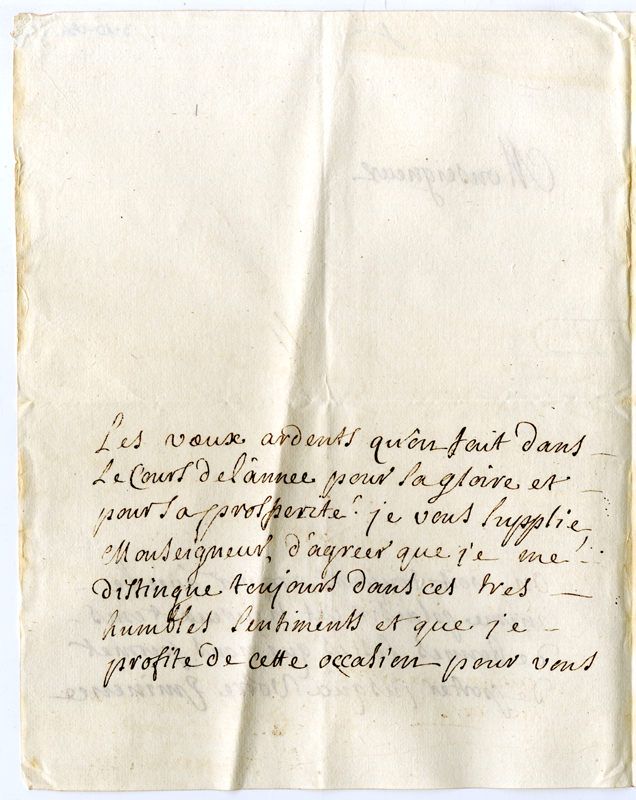 Les vœux ardents qu'on fait dans
Le Cours de l'annee pour sa gloire et
pour sa prosperité. je vous supplie
Monseigneur, d'agreer que je me
distingue toujours dans ces tres
humbles sentiments et que je
profite de cette occasion pour vous